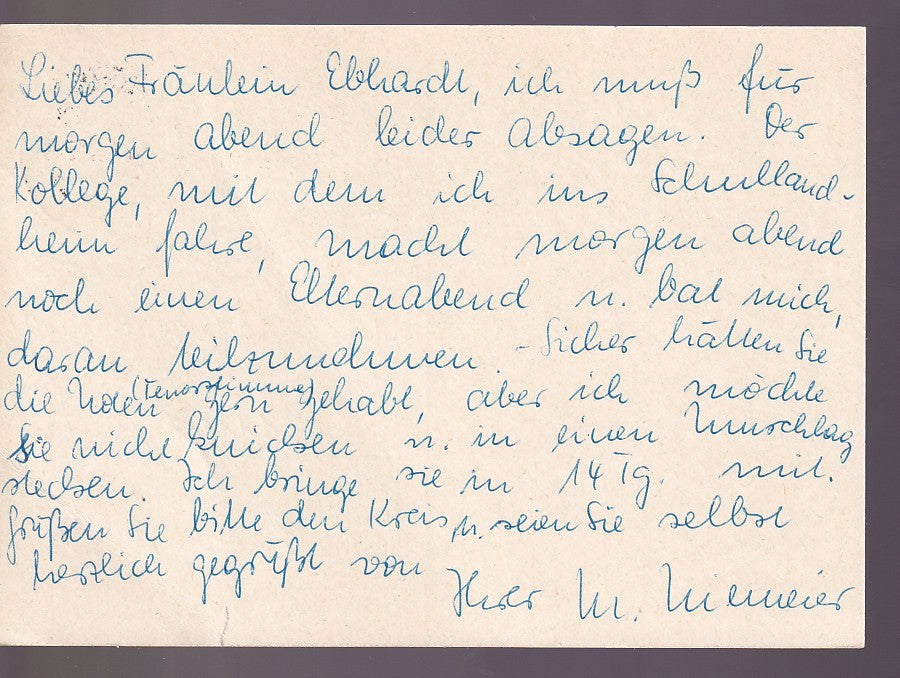 Liebes Fräulein Ebhardt, ich muß für
morgen abend leider absagen. Der
Kollege, mit dem ich ins Schulland-
heim fahre, macht morgen abend
noch einen Elternabend u. bat mich,
daran teilzunehmen. - Sicher hätten Sie
die Noten (Tenorstimme) gern gehabt, aber ich möchte
sie nicht knicken u. in einen Umschlag
stecken. Ich bringe sie in 14 Tg. mit.
Grüßen Sie bitte den Kreis u. seien Sie selbst
herzlich gegrüßt von
Ihrer M. Niemeier